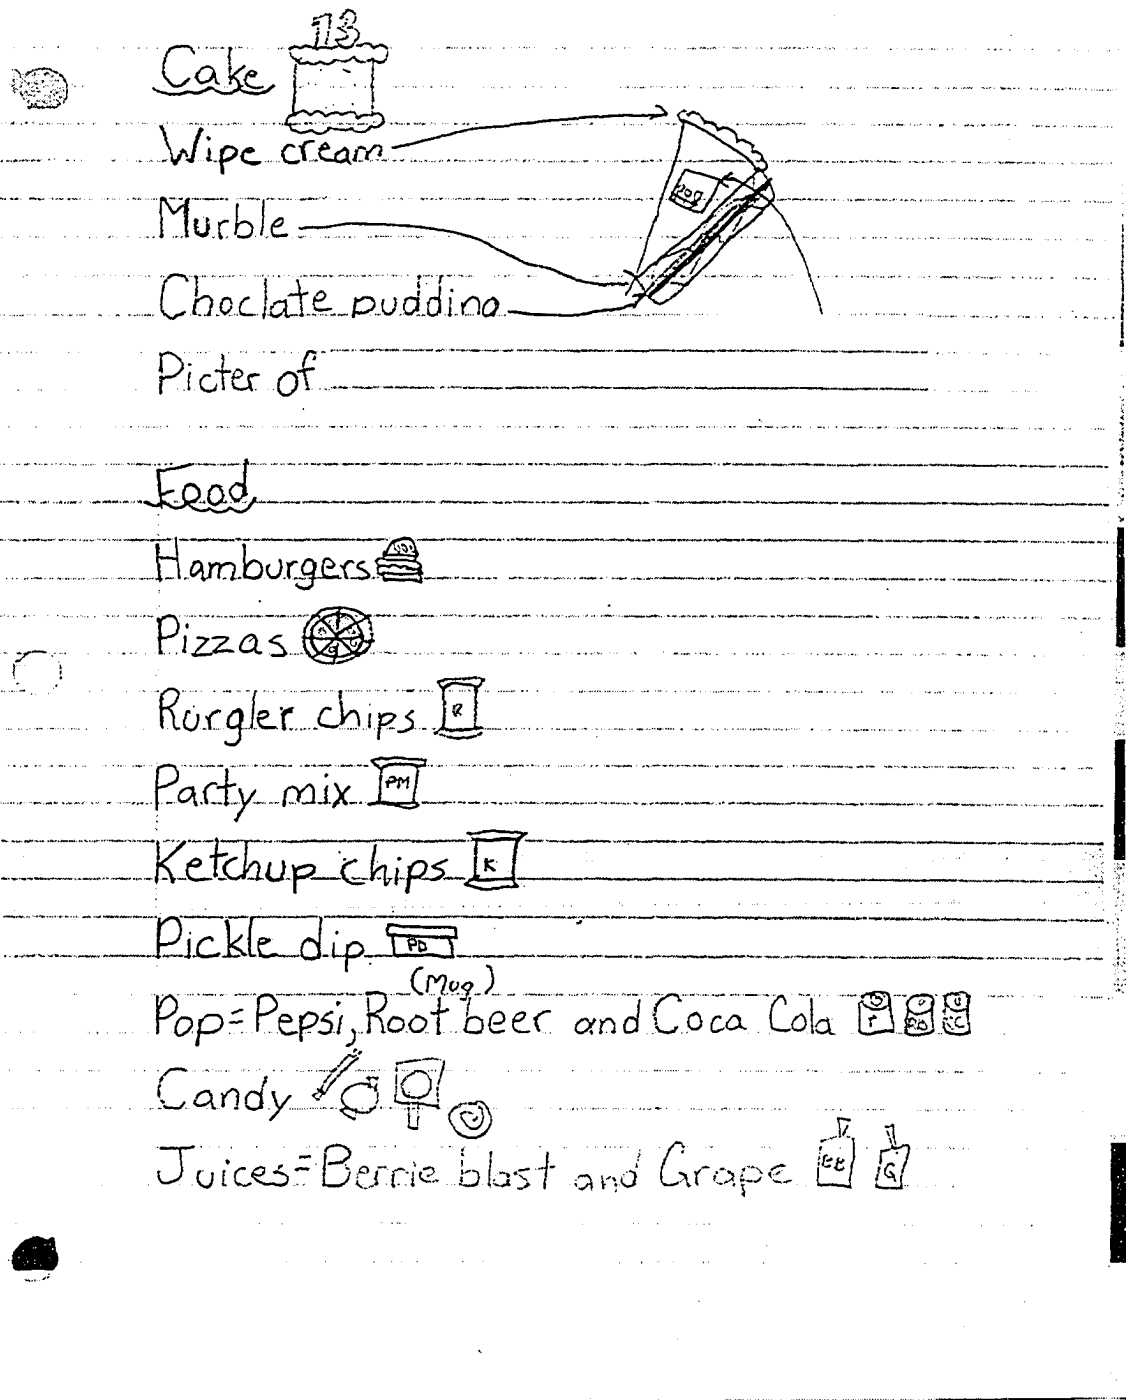 13
Cake
Wipe cream
Murble
Choclate pudding
Picter of
Food
Hamburgers
Pizzas
Rurgler chips R
Party mix PM
Ketchup chips K
Pickle dip PD
(Mug)
Pop=Pepsi, Root beer and Coca Cola P RB CC
Candy
Juices=Berrie blast and Grape BB G